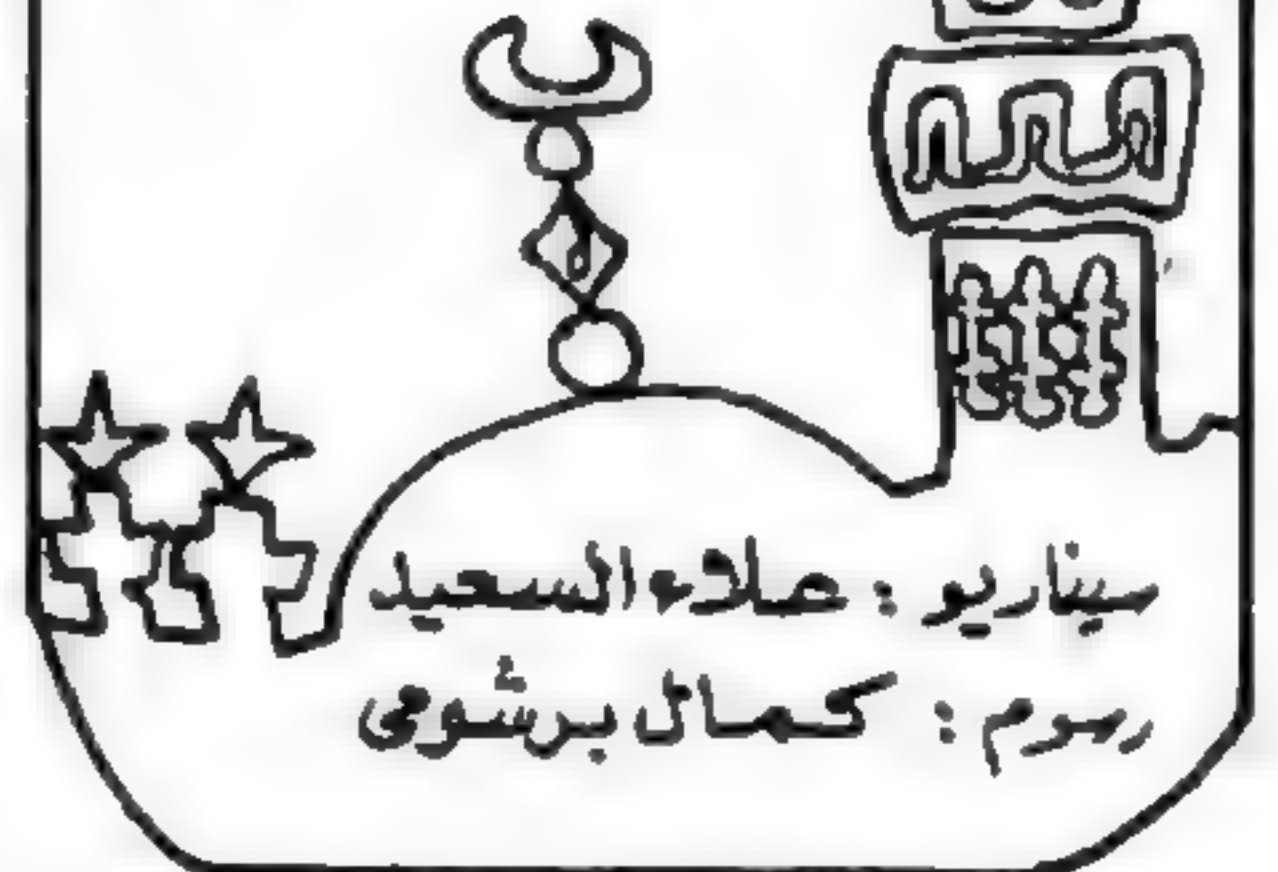 سيناريو : علاء السعيد
رسوم : كمال برشومى